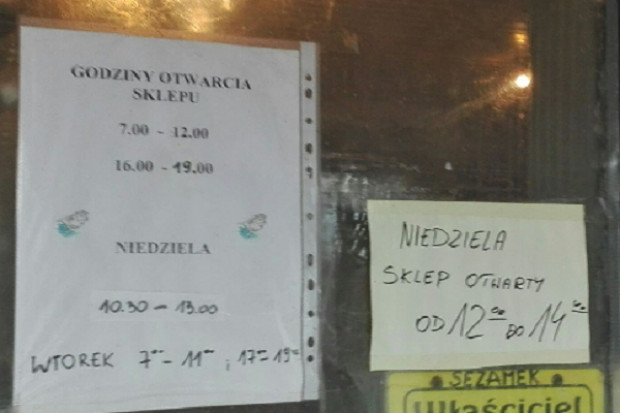 GODZINY OTWARCIA
SKLEPU
7.00 - 12.00
16.00 - 19.00
NIEDZIELA
10.30 - 13.00
WTOREK 7⁰⁰ - 11⁰⁰ i 17⁰⁰ 19⁰⁰
NIEDZIELA
SKLEP OTWARTY
OD 12⁰⁰ DO 14⁰⁰
SEZAMEK
Właściciel